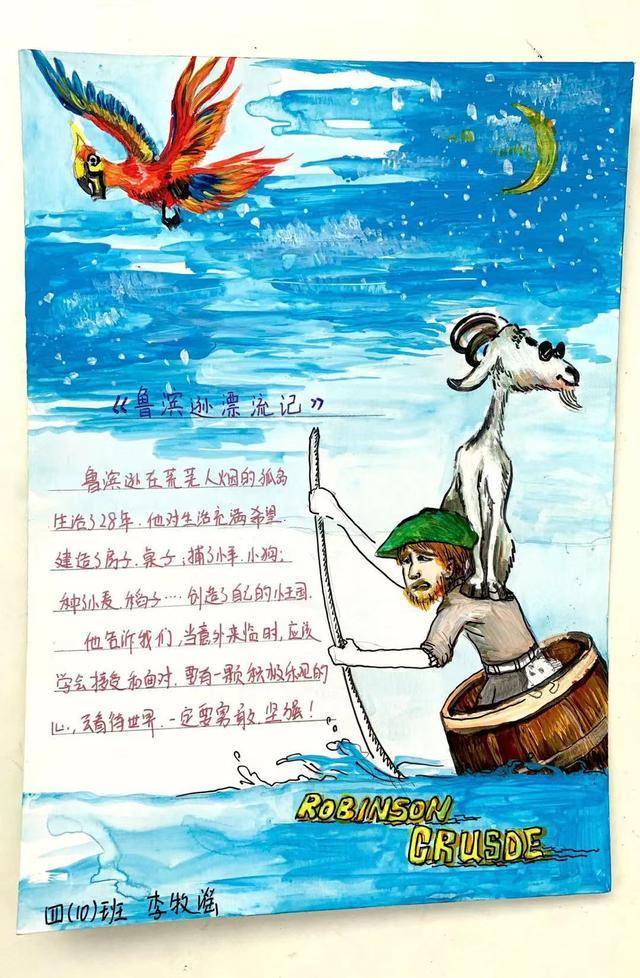 《鲁滨逊漂流记》
鲁滨逊在荒芜人烟的孤岛
生活了28年.他对生活充满希望.
建造了房子.桌子;捕了小羊.小狗;
种小麦.稻子……创造了自己的小王国.
他告诉我们,当意外来临时,应该
学会接受和面对.要有一颗积极乐观的
心,去看待世界.一定要勇敢.坚强!
ROBINSON
CRUSOE
四(10)班 李牧遥